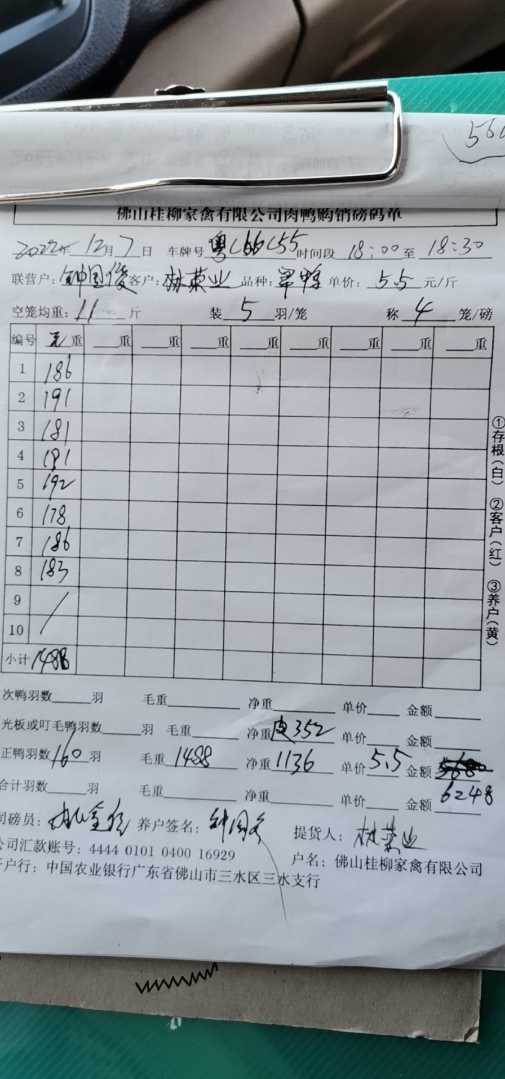 佛山桂柳家禽有限公司肉鸭购销磅码单
2022年 12月 7日 车牌号 粤C66C55 时间段 18:00 至 18:30
联营户：钟国俊 客户：林荣业 品种： 单价：5.5 元/斤
空笼均重：11 斤 装 5 羽/笼 称 4 笼/磅
编号 毛重 重 重 重 重 重 重 重
1 186
2 191
3 181
4 191
5 192
6 178
7 186
8 183
9 /
10 /
小计 1488
①存根(白) ②客户(红) ③养户(黄)
次鸭羽数 羽 毛重 净重 单价 金额
光板或叮毛鸭羽数 羽 毛重 净重 皮352 单价 金额
正鸭羽数 160 羽 毛重 1488 净重 1136 单价 5.5 金额
合计羽数 羽 毛重 净重 单价 金额 6248
司磅员： 养户签名：钟国俊 提货人：林荣业
公司汇款账号：4444 0101 0400 16929 户名：佛山桂柳家禽有限公司
开户行：中国农业银行广东省佛山市三水区三水支行